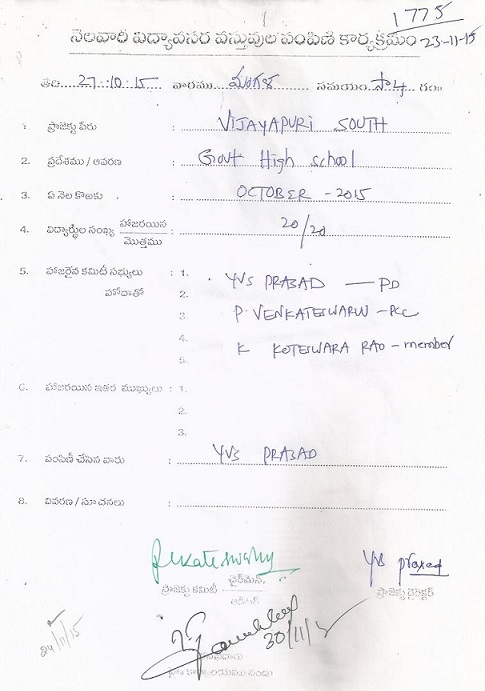 1775
నెలవారీ విద్యావసర వస్తువుల పంపిణి కార్యక్రమం 23-11-15
తేది 27.10.15 వారము మంగళ సమయం సా 4 గం
1. ప్రాజెక్టు పేరు : VIJAYAPURI SOUTH
2. ప్రదేశము / ఆవరణ : Govt High school
3. ఏ నెల కొఱకు : OCTOBER - 2015
4. విద్యార్థుల సంఖ్య హాజరయిన / మొత్తము : 20/20
5. హాజరైన కమిటీ సభ్యులు : 1. YVS PRASAD — PD
హోదాతో 2.
3. P. VENKATESWARLU - PCC
4.
5. K KOTESWARA RAO - member
6. హాజరయిన ఇతర ముఖ్యులు : 1.
2.
3.
7. పంపిణీ చేసిన వారు : YVS PRASAD
8. వివరణ / సూచనలు :
YVS prasad
ప్రాజెక్టు కమిటీ చైర్మన్
ప్రాజెక్టు డైరెక్టర్
30/11/15
24/11/15